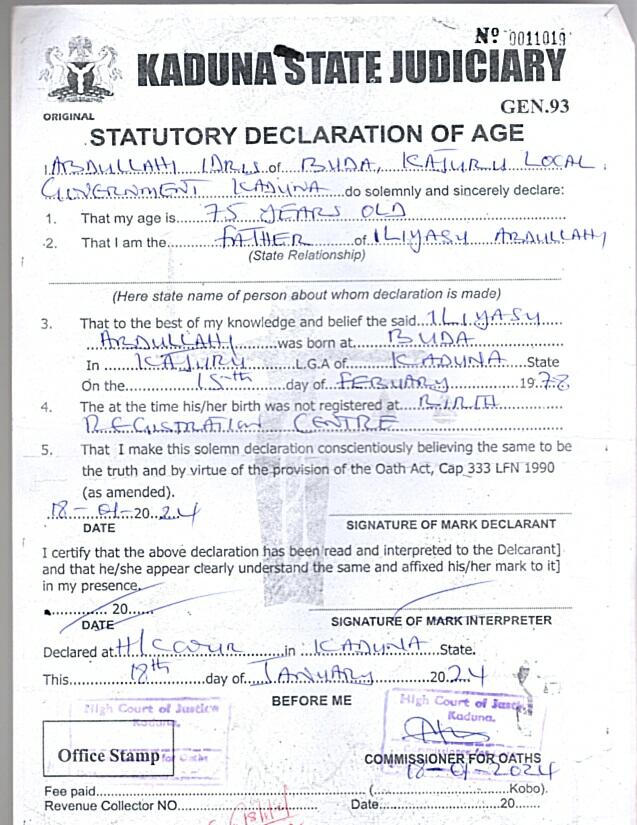 Nº 0011019
KADUNA STATE JUDICIARY
GEN.93
ORIGINAL
STATUTORY DECLARATION OF AGE
ABDULLAHI IDRIS of BUDA, KAJURU LOCAL
GOVERNMENT KADUNA do solemnly and sincerely declare:
1. That my age is 75 YEARS OLD
2. That I am the FATHER of ILIYASU ABDULLAHI
(State Relationship)
(Here state name of person about whom declaration is made)
3. That to the best of my knowledge and belief the said ILIYASU
ABDULLAHI was born at BUDA
In KAJURU L.G.A of KADUNA State
On the 15th day of FEBUARY 1978
4. The at the time his/her birth was not registered at BIRTH
REGISTRATION CENTRE
5. That I make this solemn declaration conscientiously believing the same to be
the truth and by virtue of the provision of the Oath Act, Cap 333 LFN 1990
(as amended).
18-01-2024
DATE
SIGNATURE OF MARK DECLARANT
I certify that the above declaration has been read and interpreted to the Delcarant]
and that he/she appear clearly understand the same and affixed his/her mark to it]
in my presence.
20
DATE
SIGNATURE OF MARK INTERPRETER
Declared at H/Court in KADUNA State.
This 18th day of JANUARY 2024
BEFORE ME
High Court of Justice
Kaduna.
High Court of Justice
Kaduna.
Office Stamp
for Oaths
COMMISSIONER FOR OATHS
18-01-2024
Fee paid (Kobo).
Revenue Collector NO. Date 20